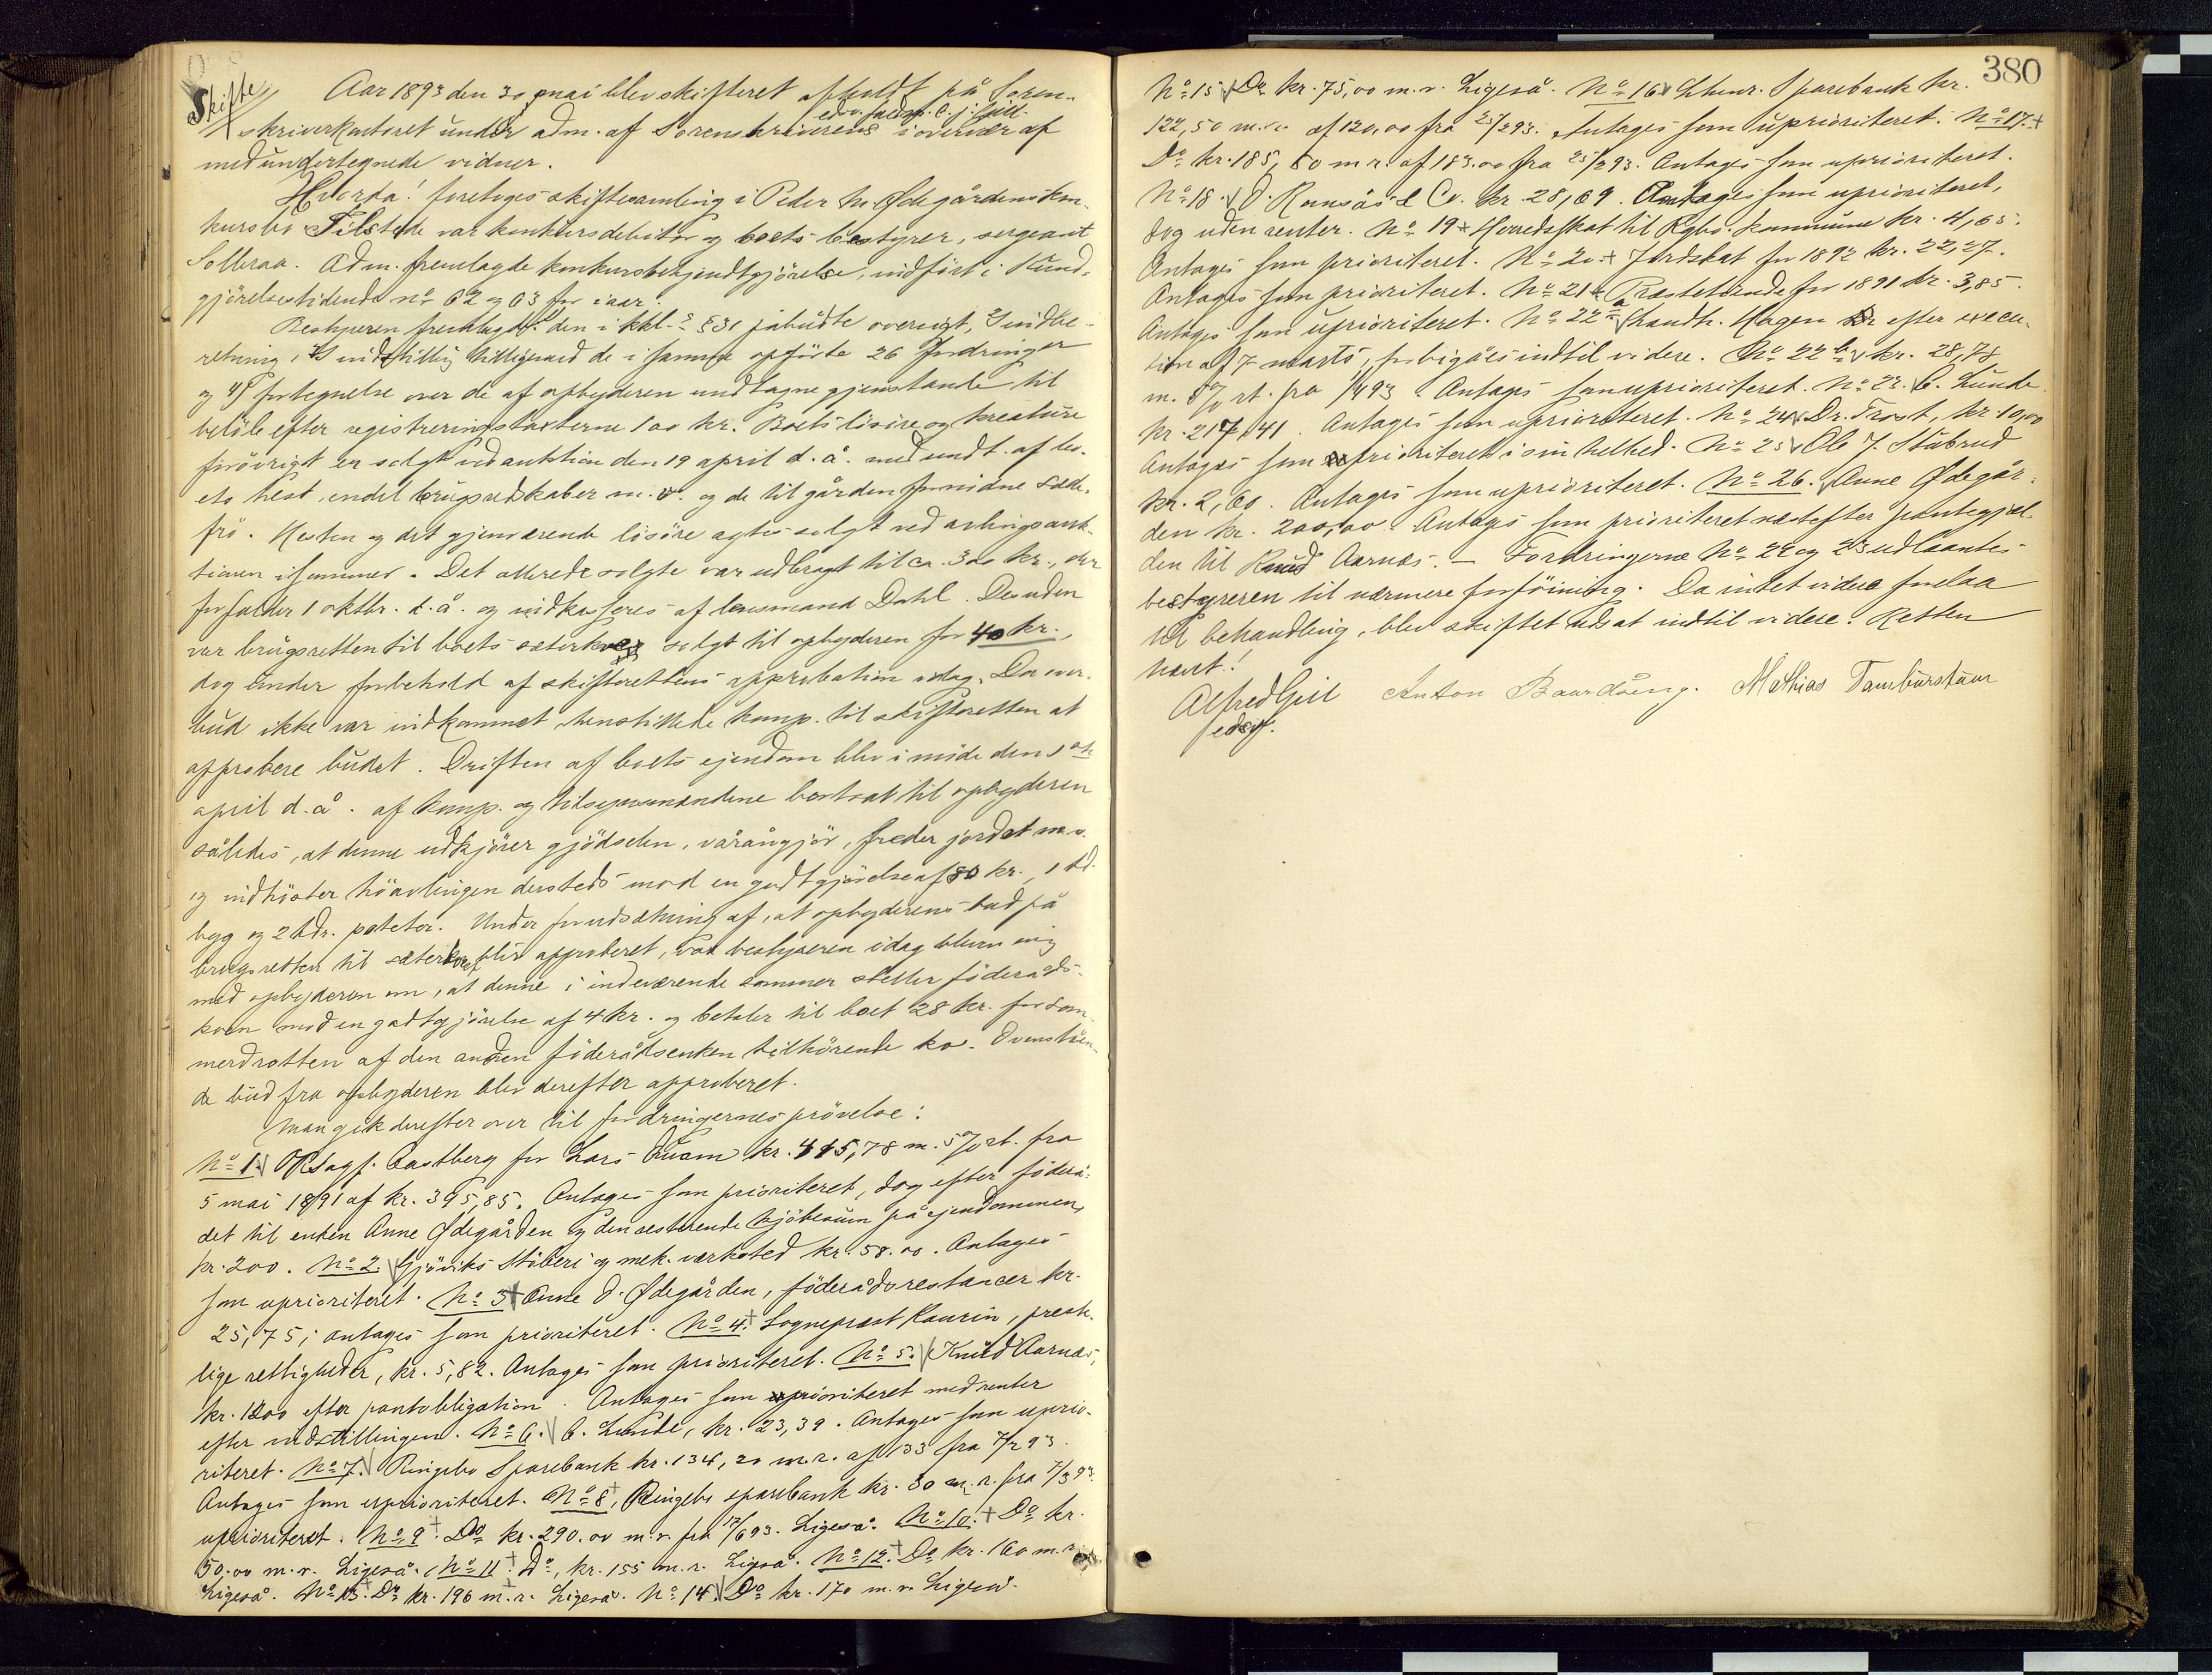 Skifte
Aar 1893 den 30 mai blev skifteret afholdt på Soren-
skriverkontoret under adm. af Sorenskriverens edsv. fuldm. A. Gjill i overvær af
medundertegnede vidner.
Hvorda! foretoges skiftesamling i Peder M. Ødegårdens kon-
kursbo. Tilstede var konkursdebitor og boets bestyrer, sergeant
Solbraa. Adm. fremlagde konkursbekjendtgjörelse, indfört i Kund-
gjörelsestidende no 62 og 63 for iaar.
Bestyreren fremlagde den i kkl.s §31 påbudte oversigt, 2) indbe-
retning, 3) indstilling tilligemed de i samme opförte 26 fordringer
og 4) fortegnelse over de af opbyderen undtagne gjenstande til
beløb efter registreringstaxterne 100 kr. Boets lösöre og kreature
forövrigt er solgt ved auktion den 19 april d. å. med undt. af bo-
ets hest, endel brugsredskaber m. v. og de til gården fornödne sæde-
frö. Hesten og det gjenværende lösöre agtes solgt ved avlingsauk-
tionen i sommer. Det allerede solgte var udbragt til ca. 320 kr., der
forfalder 1 oktbr. d. å. og indkasseres af lensmand Dahl. Desuden
var brugsretten til boets sæterkver solgt til opbyderen for 40 kr.,
dog under forbehold af skifterettens approbation idag. Da over-
bud ikke var indkommet, henstillede komp. til skifteretten at
approbere budet. Driften af boets eiendom blev i möde den 1ste
april d. å. af komp. og tilsynsmændene bortsat til opbyderen
således, at denne udkjörer gjödselen, vårångjör, freder jordet m. v.
og indhöster höavlingen dersteds mod en godtgjörelse af 80 kr., 1 td.
byg og 2 tdr. poteter. Under forudsætning af, at opbyderens bud på
brugsretten til sæterkvef blir approberet, var bestyreren idag bleven enig
med opbyderen om, at denne i indeværende sommer steller föderåds-
koen mod en godtgjörelse af 4 kr. og betaler til boet 28 kr. for som-
merdrotten af den anden föderådsenken tilhörende ko. Ovenståen-
de bud fra opbyderen blev derefter approberet.
Man gik derefter over til fordringernes prövelse:
No 1. ORsagf. Castberg for Lars Kuam kr. 415,78 m. 5% rt. fra
5 mai 1891 af kr. 395,85. Antages som prioriteret, dog efter föderå-
det til enken Anne Ødegården og den resterende kjöbesum på ejendommen,
kr. 200. No 2. Gjöviks Stöberi og mek. værksted kr. 58.00. Antages
som uprioriteret. No 3. Anne d. Ødegården, föderådsrestancer kr.
25,75; antages som prioriteret. No 4. Sogneprest Kaurin, prest-
lige rettigheder, kr. 5,82. Antages som prioriteret. No 5. Knud Aarnæs,
kr. 1200 efter pantobligation. Antages som prioriteret med renter
efter indstillingen. No 6. C. Lunde, kr. 23,39. Antages som uprio-
riteret. No 7. Ringebo Sparebank kr. 134,20 m. r. af 133 fra 7/2 93.
Antages som uprioriteret. No 8. Ringebo sparebank kr. 30 m. r. fra 7/3 93.
uprioriteret. No 9. Do kr. 290.00 m. r. fra 17/6 93. Ligeså. No 10. Do kr.
50.00 m. r. Ligeså. No 11. Do, kr. 155 m. r. Ligeså. No 12. Do kr. 160 m. r.
Ligeså. No 13. Do kr. 196 m. r. Ligeså. No 14. Do kr. 170 m. r. Ligeså.
380
No 15. Do kr. 75,00 m. r. Ligeså. No 16. Lhmr. Sparebank kr.
122,50 m. r. af 120,00 fra 25/2 93. Antages som uprioriteret. No 17.
Do kr. 185,50 m r. af 183.00 fra 25/2 93. Antages som uprioriteret.
No 18. O. Ramsås & Co. kr. 28,69. Antages som uprioriteret,
dog uden renter. No 19 Herredsskat til Rgbo. kommune kr. 4,65.
Antages som prioriteret. No 20. Jordskat for 1892 kr. 22,27.
Antages som prioriteret. No 21 Præstetiende for 1891 kr. 3,85.
Antages som uprioriteret. No 22a. Handh. Hagen efter execu-
tion af 7 marts, forbigåes indtil videre. No 22b. kr. 28,78
m. 5% rt. fra 1/4 93. Antages som uprioriteret. No 23. C. Lunde
kr. 217,41. Antages som uprioriteret. No 24 Dr. Trost, kr. 10,00
Antages som prioriteret i sin helhed. No 25 Ole J. Stubrud
kr. 2,60. Antages som uprioriteret. No 26. Anne Ødegår-
den kr. 200,00. Antages som prioriteret næstefter pantegjæl-
den til Knud Aarnæs. — Fordringerne No 22 og 23 udlaantes
bestyreren til nærmere forföining. Da intet videre forelaa
til behandling, blev skiftet udsat indtil videre. Retten
hævt!
Alfred Gill Anton Baardseng. Mathias Tamburstuen
edsv.